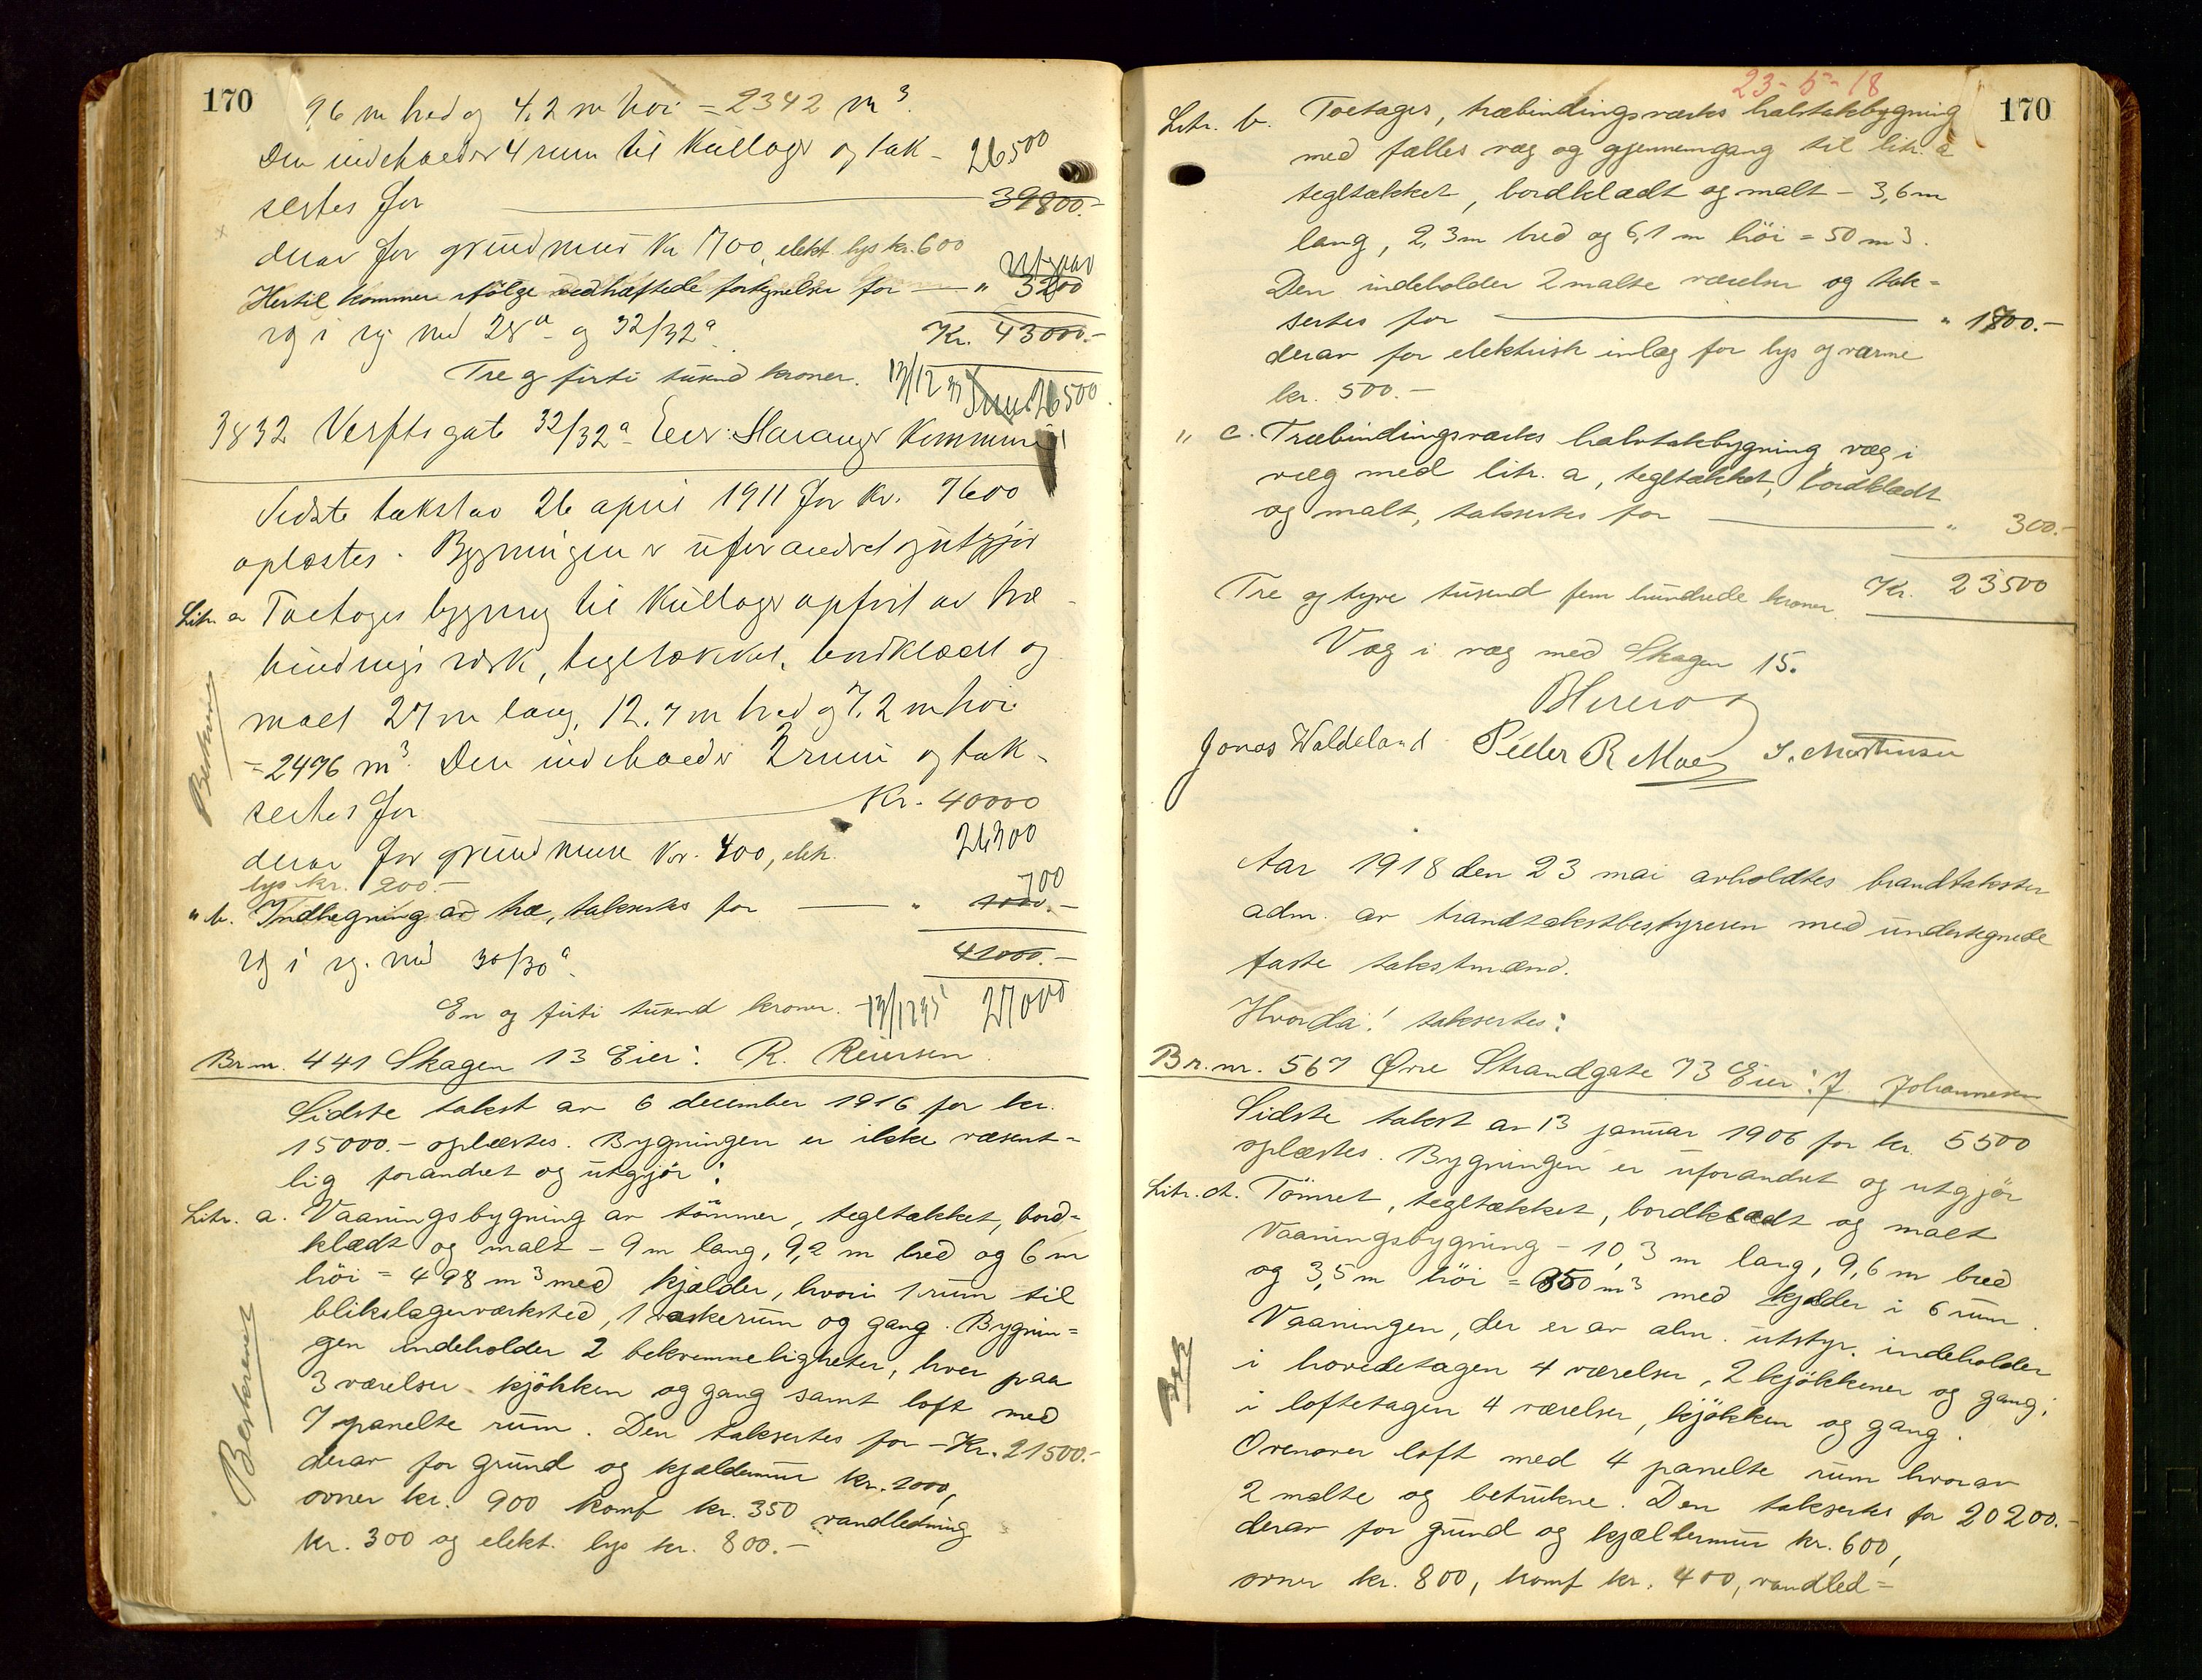 170
9,6 m bred og 4,2 m høi = 2342 m³.
Den indeholder 4 rum til kullager og tak-
26500
sertes for 39800.-
derav for grundmur kr 700, elekt. lys kr. 600
utgaar
Hertil kommer ifølge vedhæftede fortegnelse for " 3200
væg i væg med 28a og 32/32a. Kr. 43000.-
Tre og førti tusend kroner. 13/12 35 26500
3832 Verftsgate 32/32a Eier: Stavanger Kommune
Sidste takst av 26 april 1911 for kr. 7600
oplæstes. Bygningen er uforandret og utgjør
Litr. a Toetages bygning til kullager opført av træ-
bindingsverk, tegltækket, bordklædt og
malt 27 m lang, 12,7 m bred og 7,2 m høi
= 2496 m³. Den indeholder 2 rum og tak-
sertes for Kr. 40000
26300
derav for grundmure kr. 400, elek.
lys kr. 200.-
700
" b. Indhegning av træ, taksertes for " 1000.-
væg i væg med 30/30a. 41000.-
En og førti tusend kroner. 13/12 35 27000
Beskrevet
Br.nr. 441 Skagen 13 Eier: R. Reiersen.
Sidste takst av 6 december 1916 for kr.
15000.- oplæstes. Bygningen er ikke væsent=
lig forandret og utgjør:
Litr. a. Vaaningsbygning av tømmer, tegltækket, bord=
klædt og malt - 9 m lang, 9,2 m bred og 6 m
høi = 498 m³ med kjælder, hvori 1 rum til
blikslagerværksted, 1 vaskerum og gang. Bygnin=
gen indeholder 2 bekvemmeligheter, hver paa
3 værelser kjøkken og gang samt loft med
7 panelte rum. Den taksertes for - Kr. 21500.-
derav for grund og kjældermur kr. 2000,
ovner kr. 900 komf kr. 350 vandledning
kr. 300 og elekt. lys kr. 800.-
Beskrevet
23-5-18
170
Litr. b. Toetages, træbindingsverks halvtakbygning
med fælles væg og gjennemgang til litr. a
tegltækket, bordklædt og malt - 3,6 m
lang, 2,3 m bred og 6,1 m høi = 50 m³.
Den indeholder 2 malte værelser og tak=
sertes for " 1700.-
derav for elektrisk inlæg for lys og varme
kr. 500.-
" c. Træbindingsverks halvtakbygning væg i
væg med litr. a, tegltækket, bordklædt
og malt, taksertes for " 300.-
Tre og tyve tusend fem hundrede kroner. Kr. 23500
Væg i væg med Skagen 15.
Jonas Waldeland Peder R Moe J. Martinsen
Aar 1918 den 23 mai avholdtes brandtakster
adm. av brandtakstbestyreren med undertegnede
faste takstmænd.
Hvorda! taksertes:
Br.nr. 567 Øvre Strandgate 73 Eier: J. Johannesen
Sidste takst av 13 januar 1906 for kr. 5500
oplæstes. Bygningen er uforandret og utgjør
Litr. a. Tømret, tegltækket, bordklædt og malt
Vaaningsbygning - 10,3 m lang, 9,6 m bred
og 3,5 m høi = 350 m³ med kjælder i 6 rum.
Vaaningen, der er av alm. utstyr, indeholder
i hovedetagen 4 værelser, 2 kjøkkener og gang;
i loftetagen 4 værelser, kjøkken og gang.
Ovenover loft med 4 panelte rum hvorav
2 malte og betrukne. Den taksertes for 20200.-
derav for grund og kjældermur kr. 600,
ovner kr. 800, komf kr. 400, vandled=
Besk